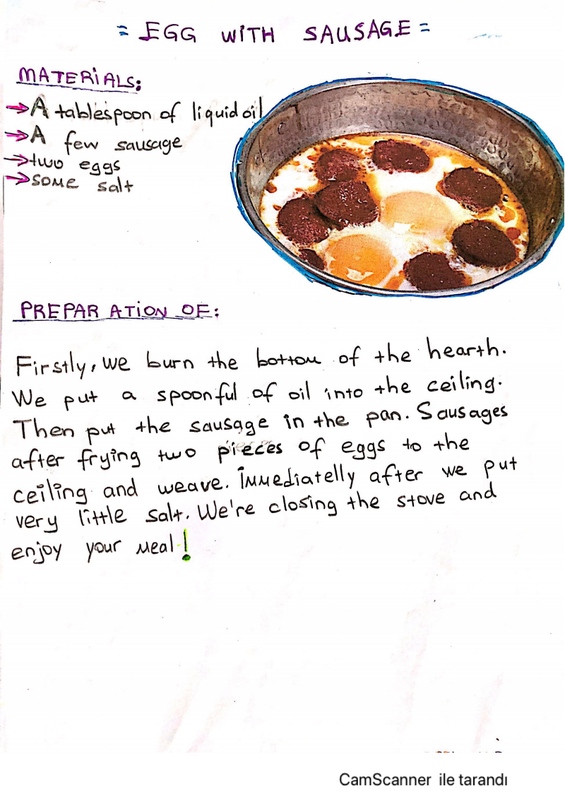 = EGG WITH SAUSAGE =
MATERiALS:
→A tablespoon of liquid oil
→A few sausage
→two eggs
→SOME salt
PREPAR ATiON OF:
Firstly, we burn the bottom of the hearth.
We put a spoonful of oil into the ceiling.
Then put the sausage in the pan. Sausages
after frying two pieces of eggs to the
ceiling and weave. immediatelly after we put
very little salt. We're closing the stove and
enjoy your meal!
CamScanner ile tarandı